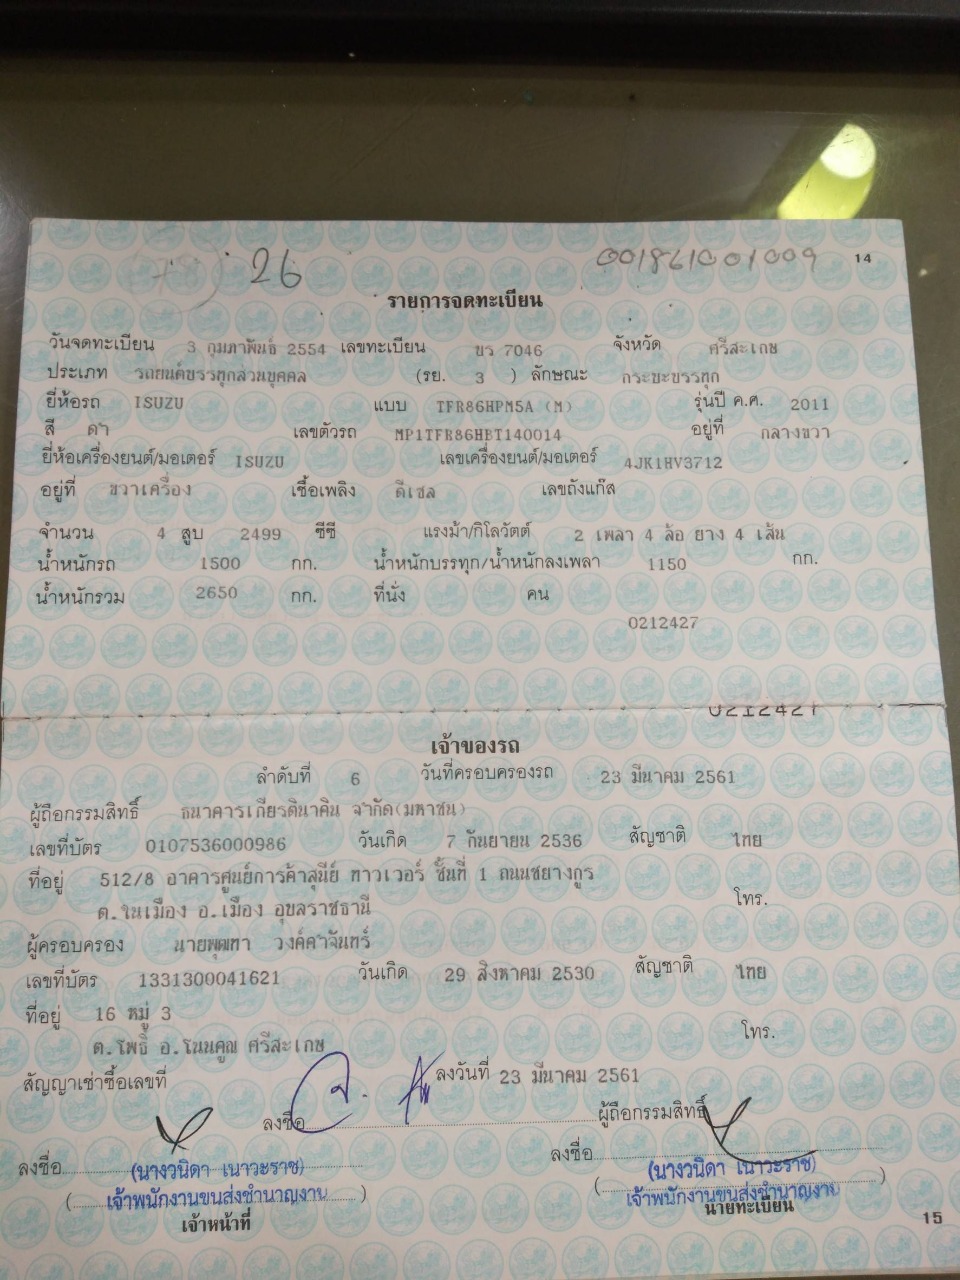 26 001861001009 14
รายการจดทะเบียน
วันจดทะเบียน 3 กุมภาพันธ์ 2554 เลขทะเบียน บร 7046 จังหวัด ศรีสะเกษ
ประเภท รถยนต์บรรทุกส่วนบุคคล (รย. 3 ) ลักษณะ กระบะบรรทุก
ยี่ห้อรถ ISUZU แบบ TFR86HPM5A (M) รุ่นปี ค.ศ. 2011
สี ดำ เลขตัวรถ MP1TFR86HBT140014 อยู่ที่ กลางขวา
ยี่ห้อเครื่องยนต์/มอเตอร์ ISUZU เลขเครื่องยนต์/มอเตอร์ 4JK1HV3712
อยู่ที่ ขวาเครื่อง เชื้อเพลิง ดีเซล เลขถังแก๊ส
จำนวน 4 สูบ 2499 ซีซี แรงม้า/กิโลวัตต์ 2 เพลา 4 ล้อ ยาง 4 เส้น
น้ำหนักรถ 1500 กก. น้ำหนักบรรทุก/น้ำหนักลงเพลา 1150 กก.
น้ำหนักรวม 2650 กก. ที่นั่ง คน
0212427
0212427
เจ้าของรถ
ลำดับที่ 6 วันที่ครอบครองรถ 23 มีนาคม 2561
ผู้ถือกรรมสิทธิ์ ธนาคารเกียรตินาคิน จำกัด(มหาชน)
เลขที่บัตร 0107536000986 วันเกิด 7 กันยายน 2536 สัญชาติ ไทย
ที่อยู่ 512/8 อาคารศูนย์การค้าสุนีย์ ทาวเวอร์ ชั้นที่ 1 ถนนชยางกูร โทร.
ต.ในเมือง อ.เมือง อุบลราชธานี
ผู้ครอบครอง นายพุฒทา วงค์คำจันทร์
เลขที่บัตร 1331300041621 วันเกิด 29 สิงหาคม 2530 สัญชาติ ไทย
ที่อยู่ 16 หมู่ 3 โทร.
ต.โพธิ์ อ.โนนคูณ ศรีสะเกษ
สัญญาเช่าซื้อเลขที่ ลงวันที่ 23 มีนาคม 2561
ลงชื่อ ผู้ถือกรรมสิทธิ์
ลงชื่อ ลงชื่อ
(นางวนิดา เนาวะราช) (นางวนิดา เนาวะราช)
(เจ้าพนักงานขนส่งชำนาญงาน) (เจ้าพนักงานขนส่งชำนาญงาน)
เจ้าหน้าที่ นายทะเบียน
15